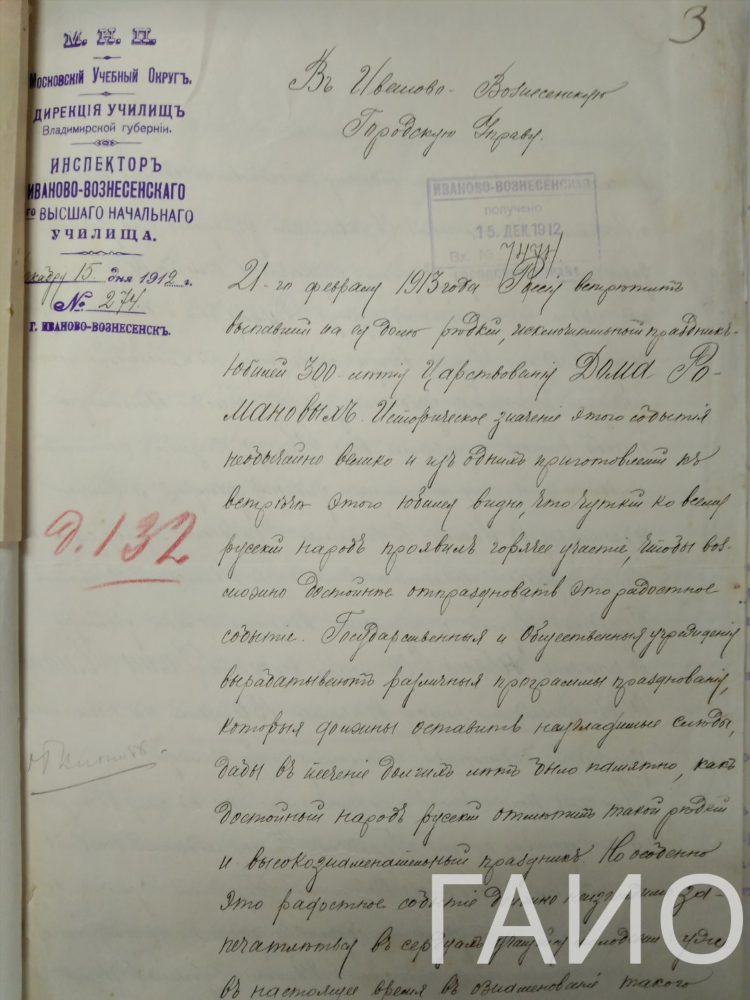 3
М. Н. П.
Московскій Учебный Округъ.
ДИРЕКЦІЯ УЧИЛИЩЪ
Владимирской губерніи.
ИНСПЕКТОРЪ
ИВАНОВО-ВОЗНЕСЕНСКАГО
го ВЫСШАГО НАЧАЛЬНАГО
УЧИЛИЩА.
15 дня 1912 г.
№ 274
г. ИВАНОВО-ВОЗНЕСЕНСК.
Въ Иваново-Вознесенскую
Городскую Управу.
ИВАНОВО-ВОЗНЕСЕНСК
получено
15. ДЕК 1912
Вх.
21-го февраля 1913 года встрѣтитъ
выпавшій на ея долю рѣдкій, исключительный праздникъ-
юбилей 300-лѣтія Царствованія Дома Ро-
мановыхъ. Историческое значеніе этого событія
необычайно велико и изъ однихъ приготовленій къ
встрѣчѣ этого юбилея видно, что чуткій ко всему
русскій народъ проявилъ горячее участіе, чтобы воз-
можно достойнѣе отпраздновать это радостное
событіе. Государственныя и Общественныя учрежденія
вырабатываютъ различныя программы празднованія,
которыя должны оставить неизгладимые слѣды,
дабы въ теченіе долгихъ лѣтъ было памятно, какъ
достойный народъ русскій отмѣтитъ такой рѣдкій
и высокознаменательный праздникъ. Но особенно
это радостное событіе должно за-
печатлѣться въ сердцахъ учащейся молодежи уже
въ настоящее время въ ознаменованіе такого
Д. 132
ГАИО